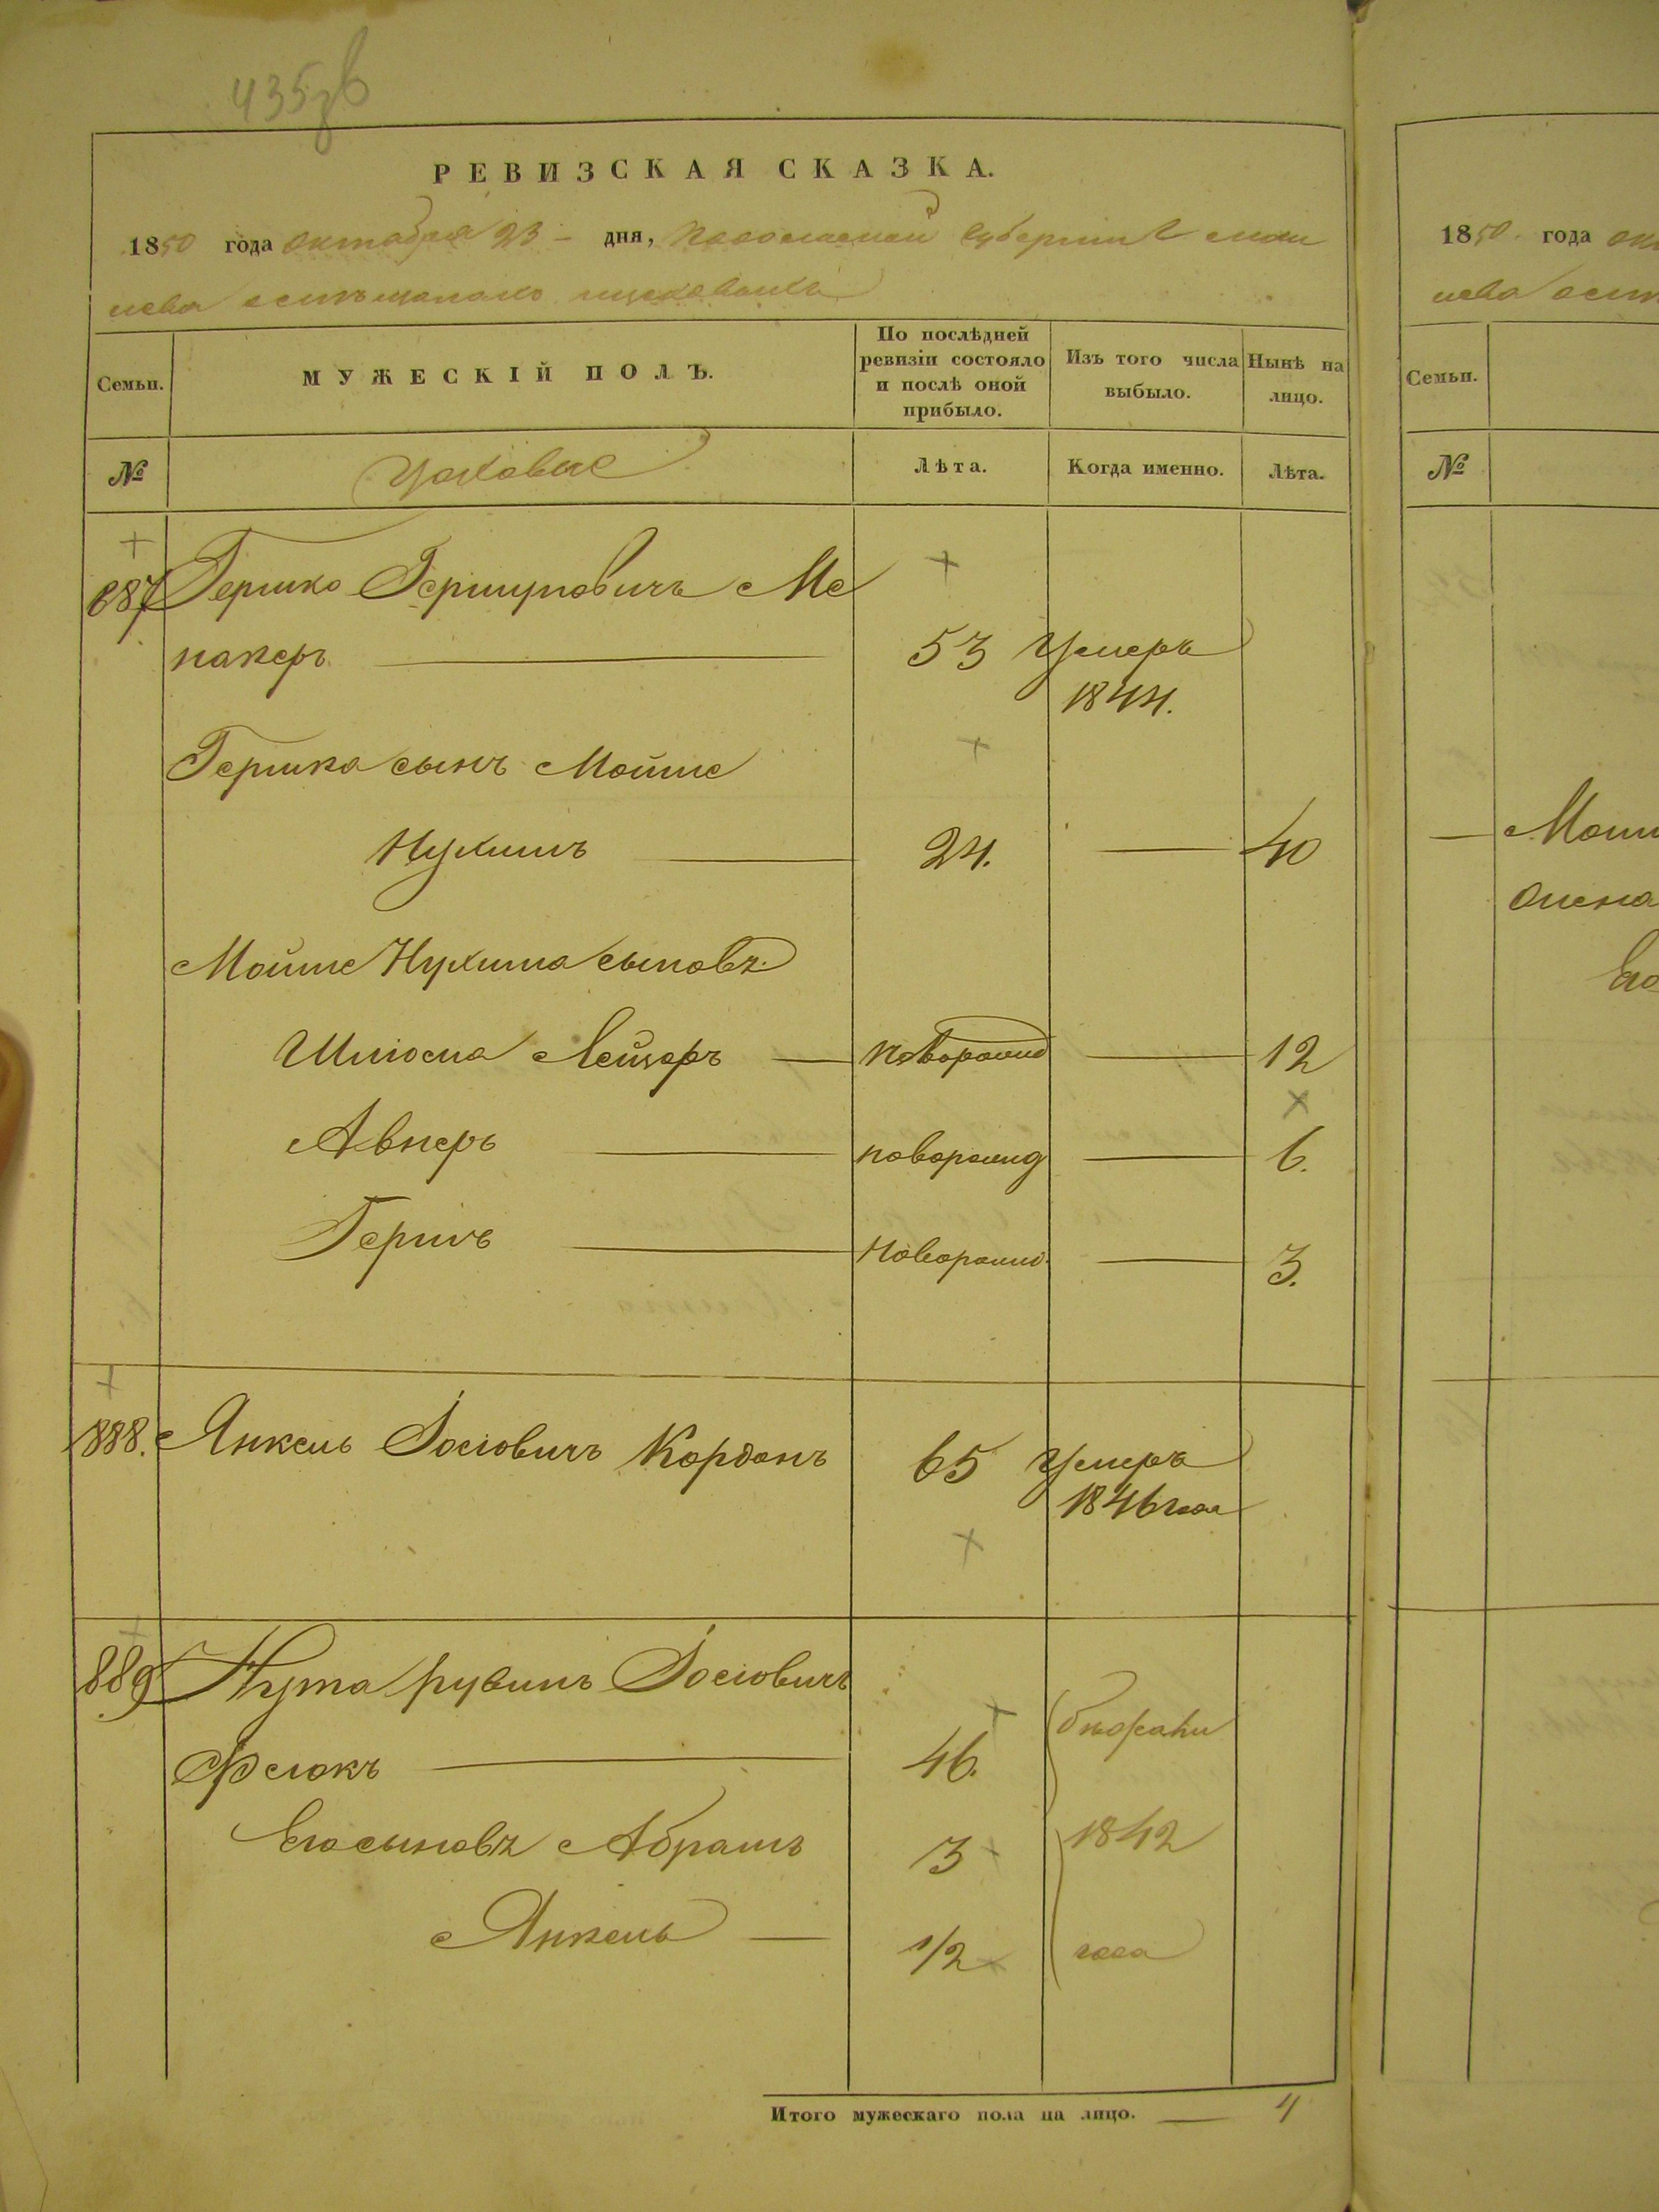 435
РЕВИЗСКАЯ СКАЗКА.
1850 года октября 23 - дня, Подольской Губерніи
Семьи.
МУЖЕСКІЙ ПОЛЪ.
По послѣдней ревизіи состояло и послѣ оной прибыло.
Изъ того числа выбыло.
Нынѣ на лицо.
№
Цеховые
Лѣта.
Когда именно.
Лѣта.
887 Гершко Гершуновичъ Ме
накеръ — 53 Умеръ
1844.
Гершка сынъ Мошме
Нухимъ — 24. — 40
Мошме Нухима сыновъ
Шлюома Лейзоръ — новорожд — 12
Авнеръ — новорожд — 6.
Гершъ — новорожд. — 3.
888. Янкель Іосіовичъ Кордонъ 65 Умеръ
1846 года
889 Нута рувинъ Іосіовичъ
Фелюкъ — 46. бѣжали
Его сыновъ Абрамъ 3 1842
Янкель — 1/2 года
Итого мужескаго пола на лицо. — 4
1850 года
Семьи.
№